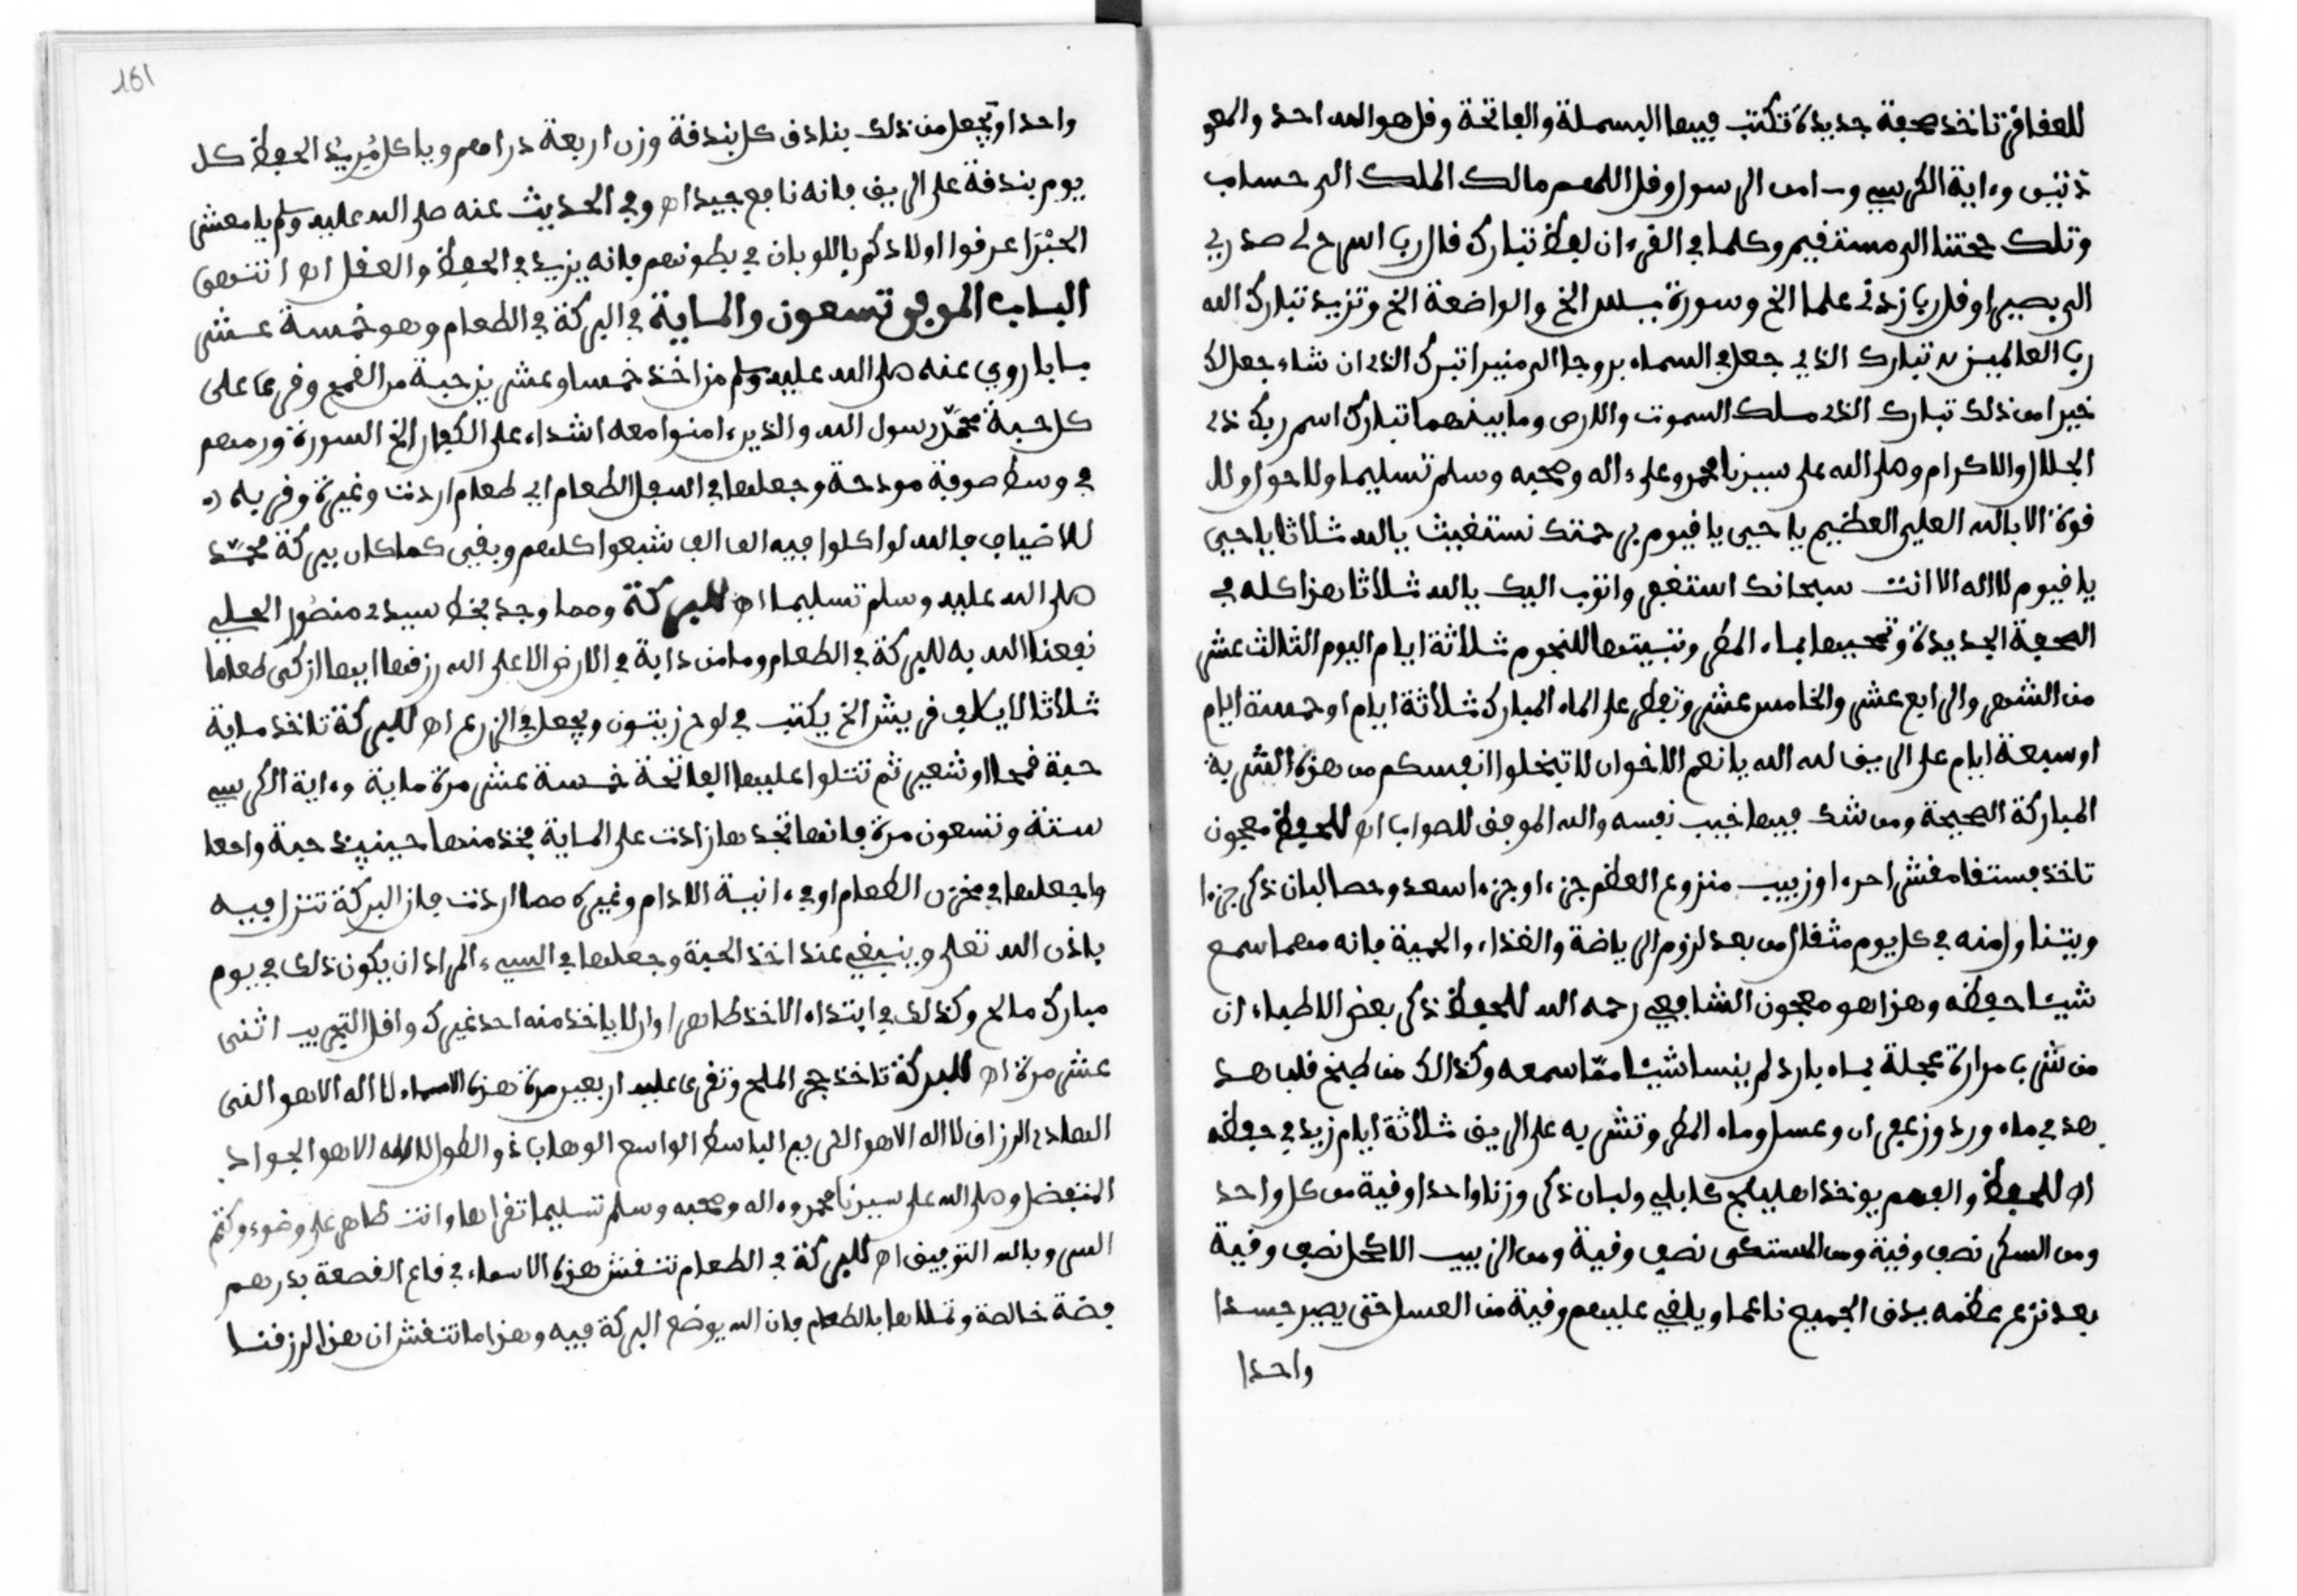 للعفاقر تاخذ صحفة جديدة تكتب فيها البسملة والفاتحة وقل هو الله احد والمعو
ذتين وءاية الكرسي وءامن الرسول وقل اللهم مالك الملك الى حساب
وتلك حجتنا الى مستقيم وكلما في القرءان لفظ تبارك قال رب اشرح لي صدري
الى بصيرا وقل رب زدني علما الخ وسورة يس الخ والواقعة الخ وتزيد تبارك الله
رب العالمين تبارك الذي جعل في السماء بروجا الى منيرا تبرك الذي ان شاء جعل لك
خيرا من ذلك تبارك الذي ملك السموت والارض وما بينهما تبارك اسم ربك ذي
الجلال والاكرام وصلى الله على سيدنا محمد وعلى ءاله وصحبه وسلم تسليما ولا حول ولا
قوة الا بالله العلي العظيم يا حيى يا قيوم برحمتك نستغيث يا الله ثلاثا يا حيى
يا قيوم لا اله الا انت سبحانك استغفر واتوب اليك يا الله ثلاثا هذا كله في
الصحفة الجديدة وتمحيها بماء المطر وتبيتها للنجوم ثلاثة ايام اليوم الثالث عشر
من الشهر والرابع عشر والخامس عشر وتفطر على الماء المبارك ثلاثة ايام او خمسة ايام
او سبعة ايام على الريق لله الله يا نعم الاخوان لا تبخلوا انفسكم من هذه الشربة
المباركة الصحيحة ومن شك فيها خيب نفسه والله الموفق للصواب اه للحفظ معجون
تاخذ فستقا مقشرا جزء او زبيب منزوع العظم جزء او جزء اسعد وحصا لبان ذكر جزءا
ويتناول منه في كل يوم مثقال من بعد لزوم الرياضة والغذاء والحمية فانه مهما سمع
شيئا حفظه وهذا هو معجون الشافعي رحمه الله للحفظ ذكر بعض الاطباء ان
من شرب مرارة عجلة بماء بارد لم ينسا شيئا مما سمعه وكذالك من طبخ قلب هد
هد في ماء ورد وزعفران وعسل وماء المطر وتشربه على الريق ثلاثة ايام زيد في حفظه
اه للحفظ والفهم يوخذ اهليلج كابلي ولبان ذكر وزنا واحدا وقية من كل واحد
ومن السكر نصف وقية ومن المستكى نصف وقية ومن الزبيب الاكحل نصف وقية
بعد نزع عظمه يدق الجميع ناعما ويلقي عليهم وقية من العسل حتى يصير جسدا
واحدا
161
واحدا وتجعل من ذلك بنادق كل بندقة وزن اربعة دراهم وياكل مريد الحفظ كل
يوم بندقة على الريق فانه نافع جيدا اه وفي الحديث عنه صلى الله عليه وسلم يا معشر
عرفوا اولادكم باللوبان في بطونهم فانه يزيد في الحفظ والعقل اه انتهى
الباب الموفي تسعون والماية في البركة في الطعام وهو خمسة عشر
بابا روي عنه صلى الله عليه وسلم من اخذ خمسا وعشرين حبة من القمح وقرءا على
كل حبة محمد رسول الله والذين ءامنوا معه اشداء على الكفار الخ السورة ورمهم
في وسط صوفة مودحة وجعلها في اسفل الطعام اي طعام اردت وغيره وقربه
للاضياف فالله لو اكلوا فيه الف الف شبعوا كلهم وبقى كما كان ببركة محمد
صلى الله عليه وسلم تسليما اه للبركة ومما وجد بخط سيدي منصور الحلبي
نفعنا الله به للبركة في الطعام وما من دابة في الارض الا على الله رزقها ايها ازكى طعاما
ثلاثا لايلاف قريش الخ يكتب في لوح زيتون ويجعل في الزرع اه للبركة تاخذ ماية
حبة قمحا او شعير ثم تتلوا عليها الفاتحة خمسة عشر مرة ماية وءاية الكرسي
ستة وتسعون مرة فانها تجدها زادت على الماية فخذ منها حينيذ حبة وا
واجعلها في مخزن الطعام او في ءانية الادام وغيره مما اردت فان البركة تنزل فيه
باذن الله تعلى وينبغي عند اخذ الحبة وجعلها في الشيء المراد ان يكون ذلك في يوم
مبارك صالح وكذلك في ابتداء الاخذ طاهرا وان لا ياخذ منه احد غيرك واقل التجريب اثنى
عشر مرة اه للبركة تاخذ حجر الملح وتقرى عليه اربعين مرة هذه الاسماء لا اله الا هو الغنى
الهادي الرزاق لا اله الا هو الكريم الباسط الواسع الوهاب ذو الطول لا اله الا هو الجواد
المتفضل وصلى الله على سيدنا محمد وءاله وصحبه وسلم تسليما تقراها وانت طاهر على وضوء وكتم
السر وبالله التوفيق اه للبركة في الطعام تنقش هذه الاسماء في قاع القصعة بدرهم
فضة خالصة وتملاها بالطعام فان الله يوضع البركة فيه وهذا ما تنقش ان هذا لرزقنا